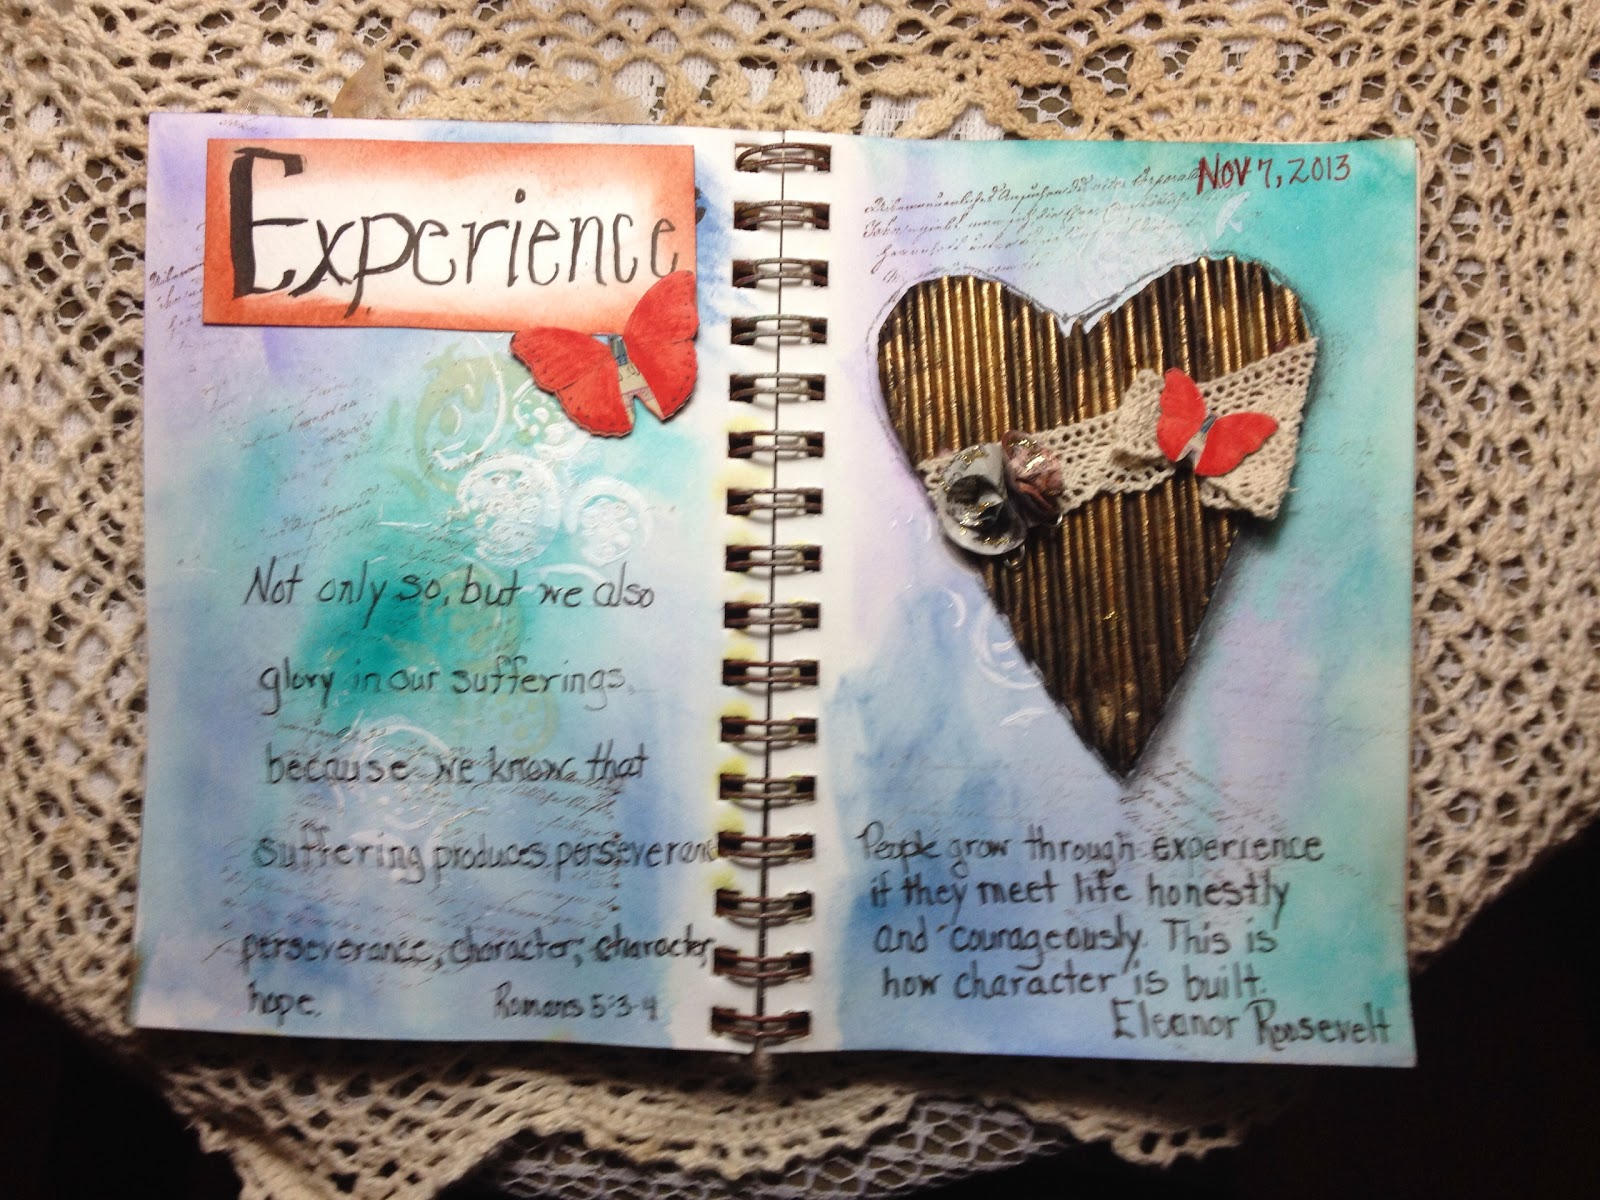 Experience
Not only so, but we also
glory in our sufferings,
because we know that
suffering produces perseverance
perseverance, character; character,
hope.
Romans 5:3-4
Nov 7, 2013
People grow through experience
if they meet life honestly
and courageously. This is
how character is built.
Eleanor Roosevelt